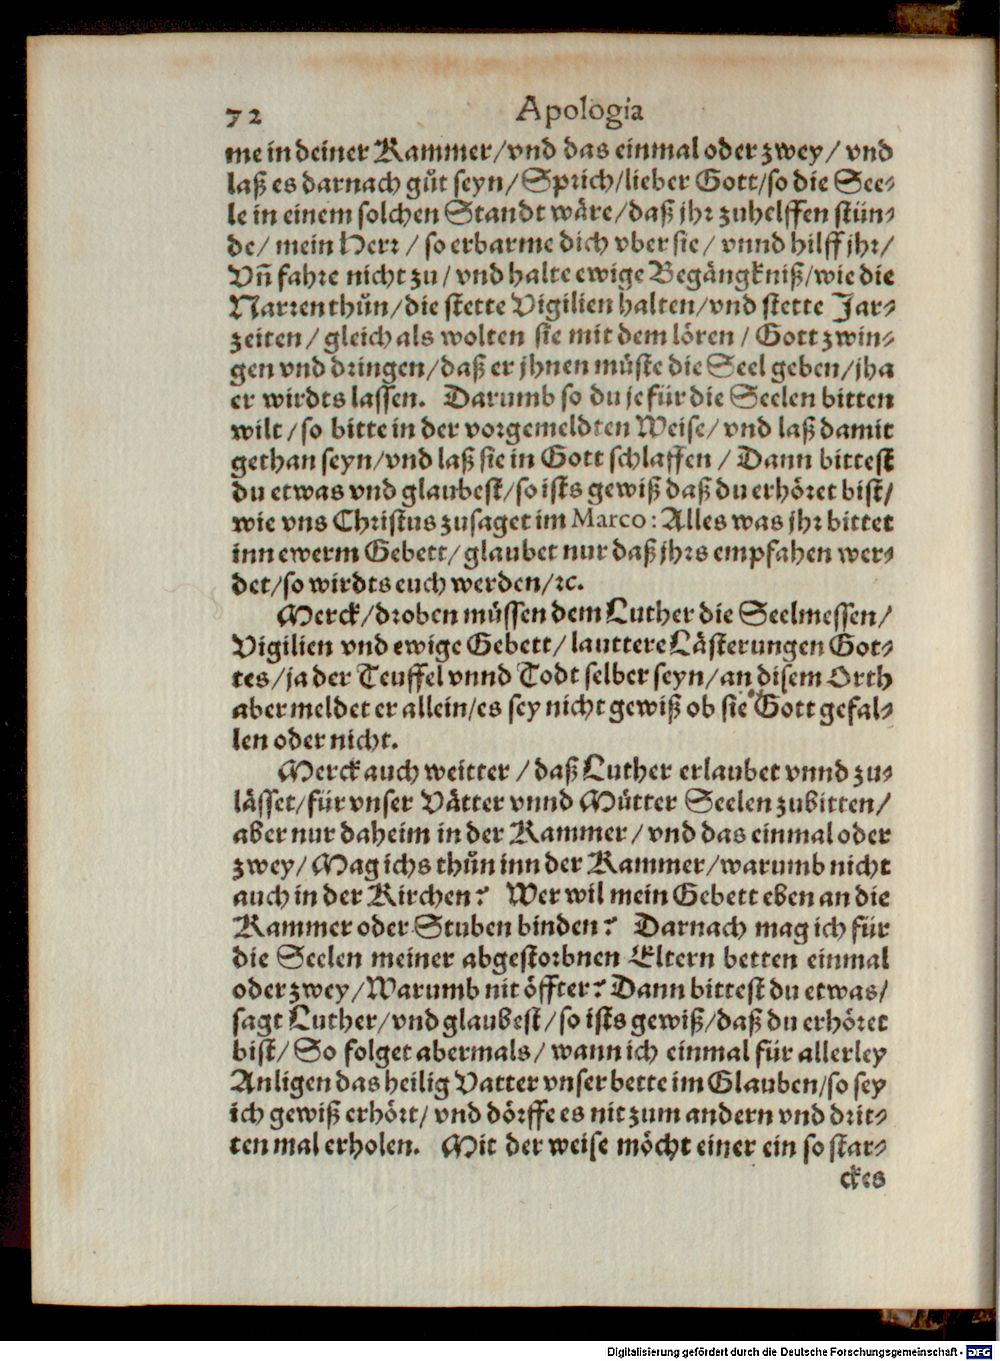 72 Apologia
me in deiner Kammer/vnd das einmal oder zwey/ vnd
laß es darnach gůt seyn/Sprich/lieber Gott/so die See⸗
le in einem solchen Standt wäre/daß jhr zuhelffen stün⸗
de/ mein Herr / so erbarme dich vber sie/ vnnd hilff jhr/
Vñ fahre nicht zu/ vnd halte ewige Begängkniß/wie die
Narren thůn/die stette Vigilien halten/vnd stette Jar⸗
zeiten/ gleich als wolten sie mit dem lören / Gott zwin⸗
gen vnd dringen/daß er jhnen müste die Seel geben/jha
er wirdts lassen. Darumb so du je für die Seelen bitten
wilt/so bitte in der vorgemeldten Weise/ vnd laß damit
gethan seyn/vnd laß sie in Gott schlaffen / Dann bittest
du etwas vnd glaubest/so ists gewiß daß du erhöret bist/
wie vns Christus zusaget im Marco: Alles was jhr bittet
inn ewerm Gebett/ glaubet nur daß jhrs empfahen wer⸗
det/so wirdts euch werden/ꝛc.
Merck/droben müssen dem Luther die Seelmessen/
Vigilien vnd ewige Gebett/ lauttere Lästerungen Got⸗
tes/ja der Teuffel vnnd Todt selber seyn/an disem Orth
aber meldet er allein/es sey nicht gewiß ob sie Gott gefal⸗
len oder nicht.
Merck auch weitter / daß Luther erlaubet vnnd zu⸗
lässet/für vnser Vätter vnnd Mütter Seelen zubitten/
aber nur daheim in der Kammer/ vnd das einmal oder
zwey/ Mag ichs thůn inn der Kammer/warumb nicht
auch in der Kirchen? Wer wil mein Gebett eben an die
Kammer oder Stuben binden? Darnach mag ich für
die Seelen meiner abgestorbnen Eltern betten einmal
oder zwey/Warumb nit öffter? Dann bittest du etwas/
sagt Luther/vnd glaubest/so ists gewiß/daß du erhöret
bist/ So folget abermals/ wann ich einmal für allerley
Anligen das heilig Vatter vnser bette im Glauben/so sey
ich gewiß erhört/ vnd dörffe es nit zum andern vnd drit⸗
ten mal erholen. Mit der weise möcht einer ein so star⸗
ckes
Digitalisierung gefördert durch die Deutsche Forschungsgemeinschaft - DFG